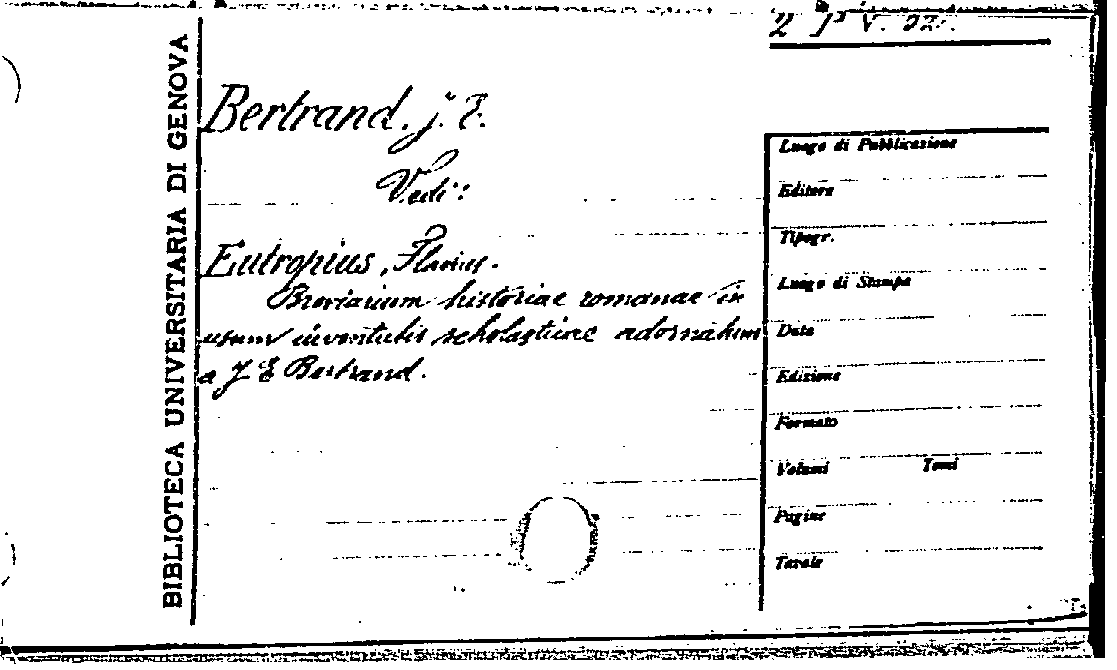 BIBLIOTECA UNIVERSITARIA DI GENOVA
Bertrand. J. E.
Vedi:
Eutropius, Flavius.
Breviarium historiae romanae in
usum iuventutis scholasticae adornatum
a J E Bertrand.
Luogo di Pubblicazione
Editore
Tipogr.
Luogo di Stampa
Data
Edizione
Formato
Volumi Tomi
Pagine
Tavole